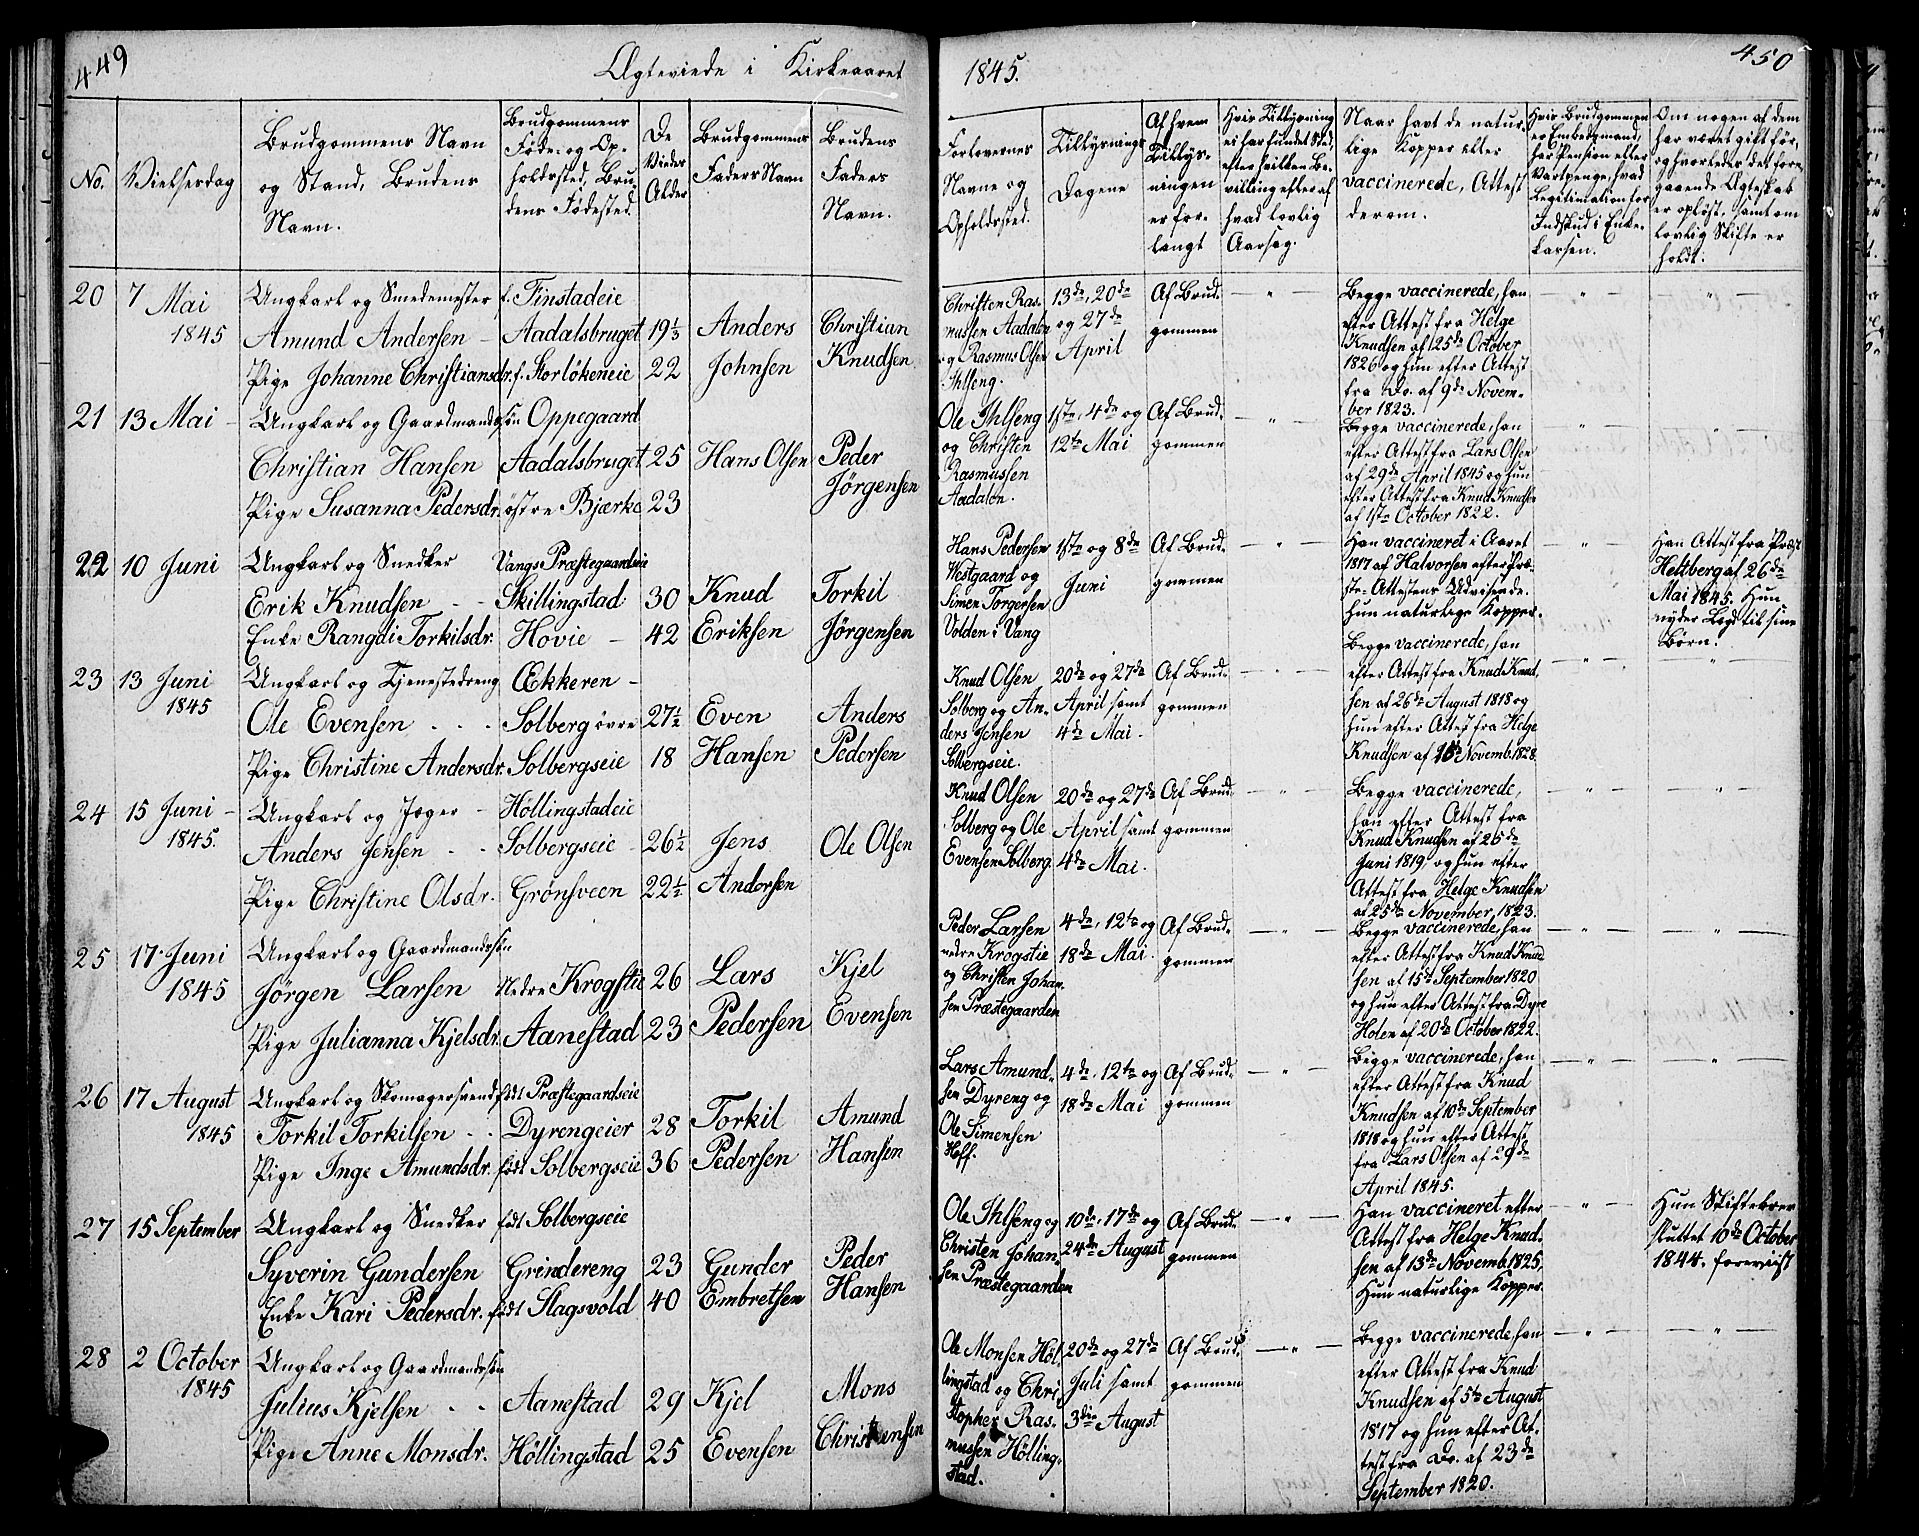 449
Ægteviede i Kirkeaaret
1845.
450
No.
Vielsesdag
Brudgommens Navn
og Stand, Brudens
Navn.
Brudgommens
Føde- og Op-
holdssted, Bru-
dens Fødested.
De
Viedes
Alder
Brudgommens
Faders Navn
Brudens
Faders
Navn.
Forlovernes
Navne og
Opholdssted.
Tillysnings
Dagene
Af hvem
Tillys-
ningen
er for-
langt
Hvis Tillysning
ei har fundet Sted,
efter hvilken Be-
villing efter af
hvad lovlig
Aarsag.
Naar havt de natur-
lige Kopper eller
vaccinerede, Attest
derom.
Hvis Brudgommen
er Embedsmand,
har Pension eller
Vartpenge, hvad
Legitimation for
Indskud i Enke-
kassen.
Om nogen af dem
har været gift før,
og hvorledes det fore-
gaaende Ægteskab
er opløst, samt om
lovlig Skifte er
holdt.
20
7 Mai
1845
Ungkarl og Smedemester
Amund Andersen
Pige Johanne Christiansdr.
f. Finstadeie
Aadalsbruget
f. Storlökeneie
19⅓
22
Anders
Johnsen
Christian
Knudsen
Christen Ras-
mussen Aadalen
og Rasmus Olsen
Ihlseng.
13de, 20de
og 27de
April
Af Brud-
gommen
Begge vaccinerede, han
efter Attest fra Helge
Knudsen af 25de October
1826 og hun efter Attest
fra Do. af 9de Novem-
ber 1823.
21
13 Mai
Ungkarl og Gaardmandssøn
Christian Hansen
Pige Susanna Pedersdr.
Oppegaard
Aadalsbruget
östre Bjerke
25
23
Hans Olsen
Peder
Jörgensen
Ole Ihlseng
og Christen
Rasmussen
Aadalen.
1ste, 4de og
12te Mai
Af Brud-
gommen
Begge vaccinerede, han
efter Attest fra Lars Olsen
af 29de April 1845 og hun
efter Attest fra Knud Knudsen
af 1ste October 1822.
22
10 Juni
Ungkarl og Snedker
Erik Knudsen
Enke Rangdi Torkilsdr.
Vangs Præstegaardseie
Skillingstad
Hovie
30
42
Knud
Eriksen
Torkil
Jörgensen
Hans Pedersen
Westgaard og
Simen Torgersen
Volden i Vang
1ste og 8de
Juni
Af Brud-
gommen
Han vaccineret i Aaret
1817 af Halvorsen efter Præ-
ste-Attestens Udvisende.
Hun naturlige Kopper.
Han Attest fra Præst
Heltberg af 26de
Mai 1845. Hun
nyder Lægd til sine
Børn.
23
13 Juni
1845
Ungkarl og Tjenestedreng
Ole Evensen
Pige Christine Andersdr.
Ækkeren
Solberg øvre
Solbergseie
27½
18
Even
Hansen
Anders
Pedersen
Knud Olsen
Solberg og An-
ders Jensen
Solbergseie.
20de og 27de
April samt
4de Mai.
Af Brud-
gommen
Begge vaccinerede, han
efter Attest fra Knud Knud-
sen af 26de August 1818 og
hun efter Attest fra Helge
Knudsen af Novemb. 1828.
24
15 Juni
1845.
Ungkarl og Jæger
Anders Jensen
Pige Christine Olsdr.
Höllingstadeie
Solbergseie
Grönsveen
26½
22½
Jens
Andersen
Ole Olsen
Knud Olsen
Solberg og Ole
Evensen Solberg
20de og 27de
April samt
4de Mai.
Af Brud-
gommen
Begge vaccinerede,
han efter Attest fra
Knud Knudsen af 26de
Juni 1819 og hun efter
Attest fra Helge Knudsen
af 25de November 1823.
25
17 Juni
1845
Ungkarl og Gaardmandssøn
Jörgen Larsen
Pige Julianna Kjelsdr.
Nedre Krogstie
Aanestad
26
23
Lars
Pedersen
Kjel
Evensen
Peder Larsen
nedre Krogstie
og Christen Johan-
sen Præstegaarden
4de, 12te og
18de Mai.
Af Brud-
gommen
Begge vaccinerede, han
efter Attest fra Knud Knud-
sen af 15de September 1820
og hun efter Attest fra Dyre
Holen af 20de October 1822.
26
17 August
1845
Ungkarl og Skomagersvend
Torkil Torkilsen
Pige Inge Amundsdr.
født Præstegaardseie
Dyrengeier
født Solbergseie
28
36
Torkil
Pedersen
Amund
Hansen
Lars Amund-
sen Dyreng og
Ole Simensen
Hoff.
4de, 12te og
18de Mai
Af Brud-
gommen
Begge vaccinerede, han
efter Attest fra Knud
Knudsen af 10de September
1818 og hun efter Attest
fra Lars Olsen af 29de
April 1845.
27
15 September
Ungkarl og Snedker
Syverin Gundersen
Enke Kari Pedersdr.
født Solbergseie
Grindereng
født Slagsvold
23
40
Gunder
Embretsen
Peder
Hansen
Ole Ihlseng og
Christen Johan-
sen Præstegaarden
10de, 17de og
24de August
Af Brud-
gommen
Han vaccineret efter
Attest fra Helge Knud-
sen af 13de Novemb. 1825,
Hun naturlige Kopper.
Hun Skiftebrev
sluttet 10de October
1844. foreviist
28
2 October
1845
Ungkarl og Gaardmandssøn
Julius Kjelsen
Pige Anne Monsdr.
Aanestad
Höllingstad
29
25
Kjel
Evensen
Mons
Christensen
Ole Monsen Höl-
lingstad og Chri-
stopher Ras-
mussen Hölling-
stad.
20de og 27de
Juli samt
3die August
Af Brud-
gommen
Begge vaccinerede, han
efter Attest fra Knud
Knudsen af 5te August
1817 og hun efter At-
test fra Do. af 23de
September 1820.